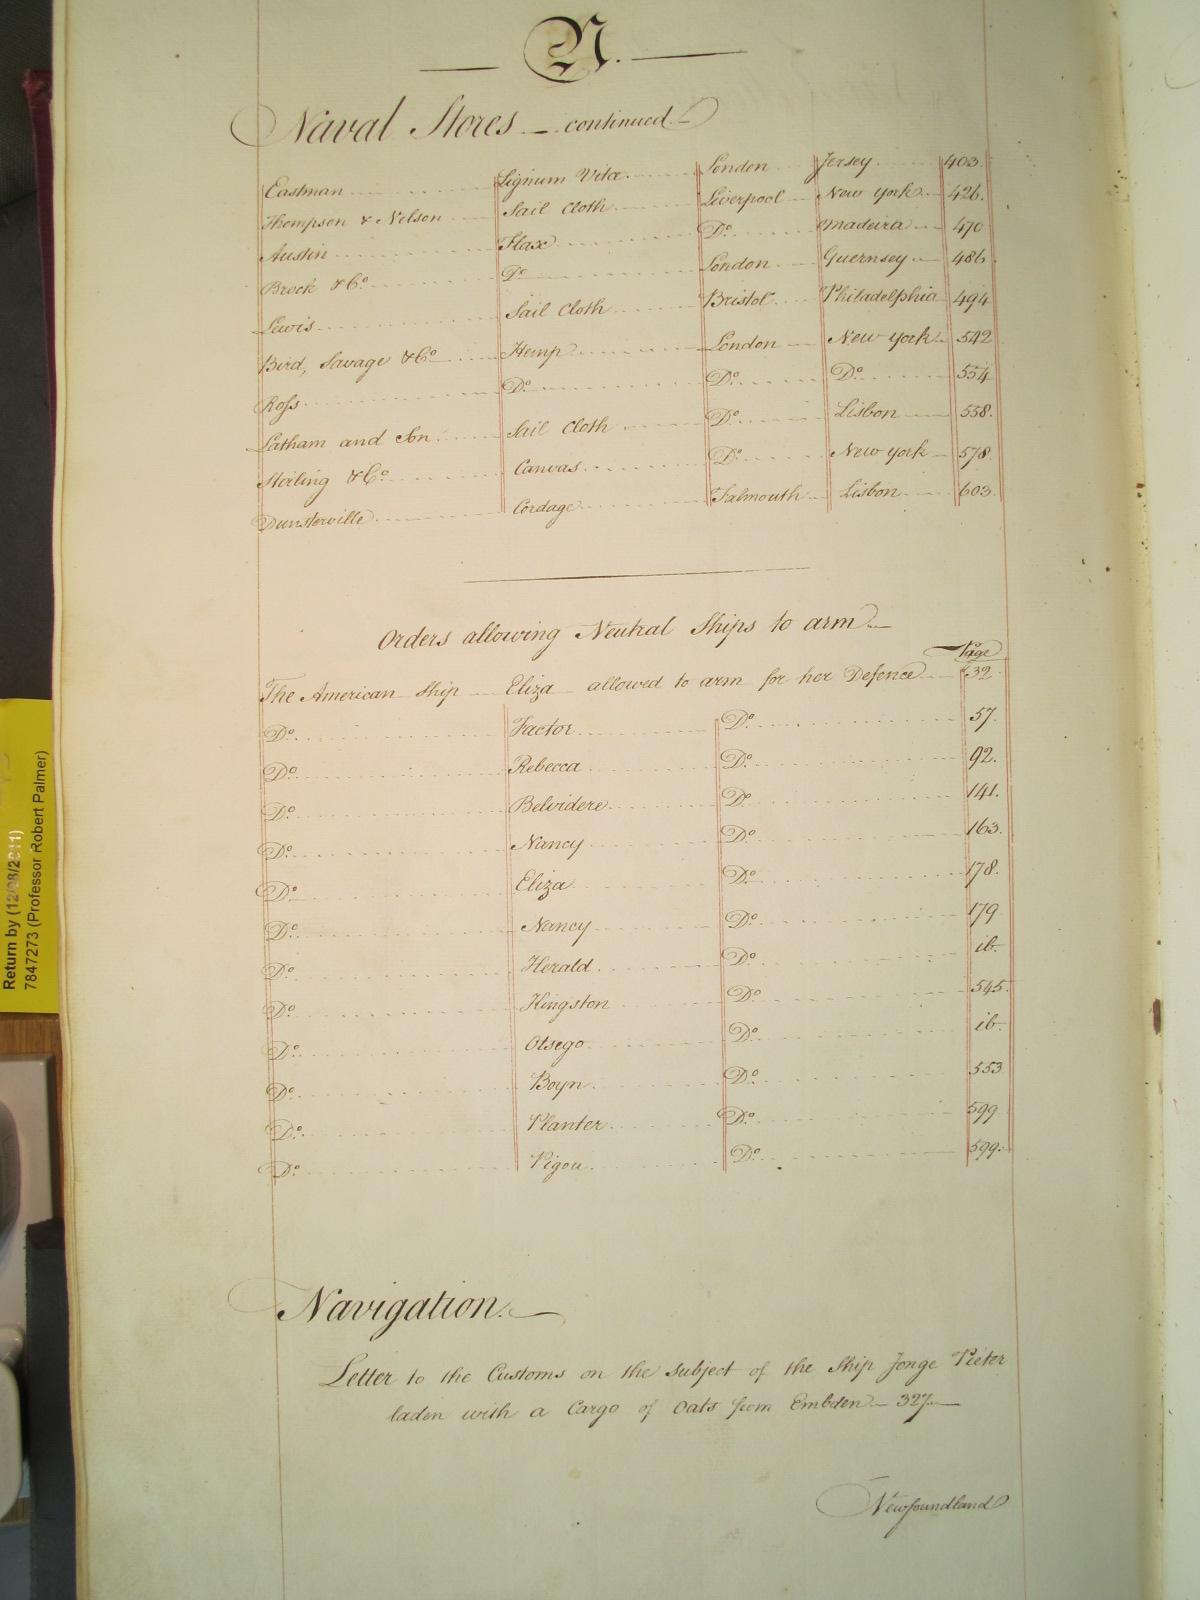 N.
Naval Stores — continued —
Eastman Lignum Vitæ London Jersey 403.
Thompson & Nelson Sail Cloth Liverpool New York 426.
Austin Flax Do. Madeira 470
Brock & Co. Do. London Guernsey 486
Lewis Sail Cloth Bristol Philadelphia 494
Bird, Savage & Co. Hemp London New York 542
Ross Do. Do. Do. 554
Latham and Son Sail Cloth Do. Lisbon 558.
Stirling & Co. Canvas Do. New York 578
Dunsterville Cordage Falmouth Lisbon 603
Orders allowing Neutral Ships to arm
Page
The American Ship Eliza allowed to arm for her Defence 32
Do. Factor Do. 57.
Do. Rebecca Do. 92.
Do. Belvidere Do. 141.
Do. Nancy Do. 163.
Do. Eliza Do. 178.
Do. Nancy Do. 179
Do. Herald Do. ib.
Do. Kingston Do. 545.
Do. Otsego Do. ib.
Do. Boyn Do. 553
Do. Planter Do. 599
Do. Pigou Do. 599.
Navigation.
Letter to the Customs on the subject of the Ship Jonge Pieter
laden with a Cargo of Oats from Embden — 327.
Newfoundland
Return by (12/08/2011)
7847273 (Professor Robert Palmer)